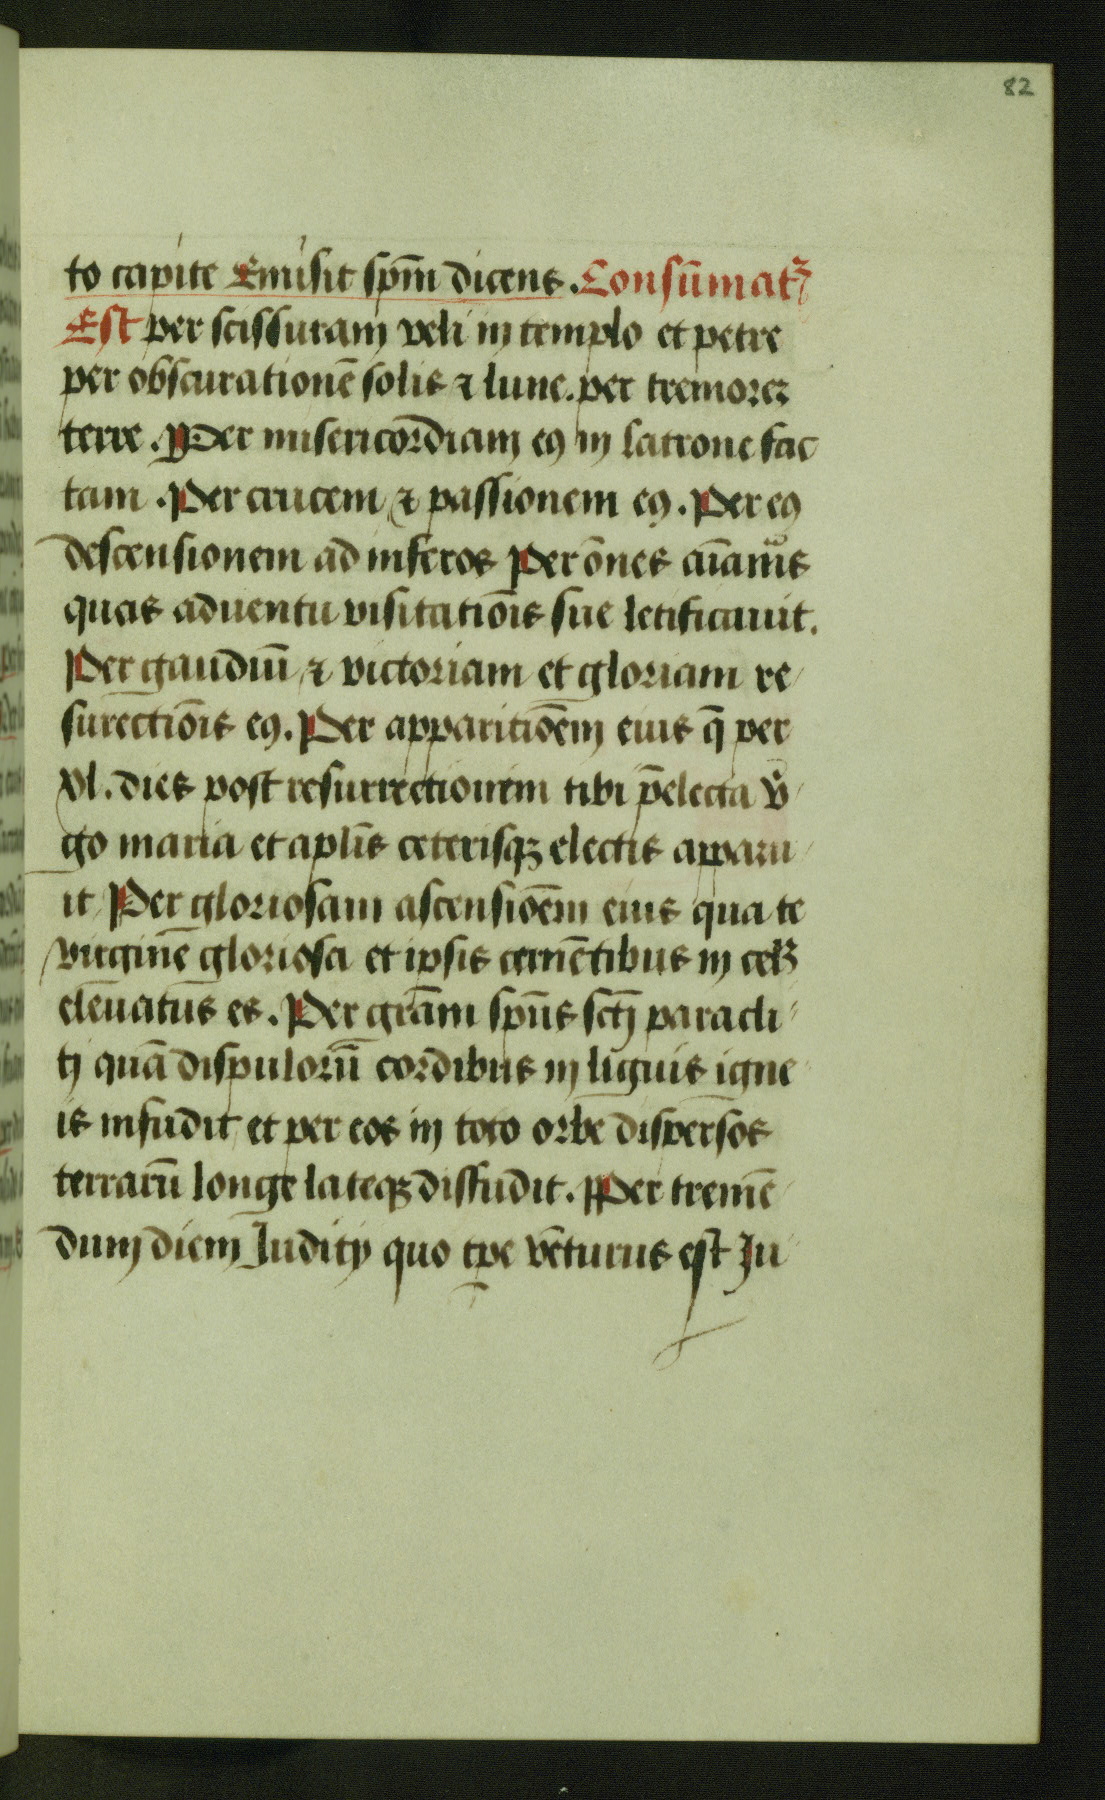 82
to capite Emisit spm̄ dicens. Consūmatꝫ
Est per scissuram veli in templo et petre
per obscurationē solis ⁊ lune. per tremorez
terre. Per misericordiam eꝰ in latrone fac
tam. Per crucem ⁊ passionem eꝰ. Per eꝰ
descensionem ad inferos Per ōnes aīas
quas aduentu visitatiōis sue letificauit.
Per gaudiū ⁊ victoriam et gloriam re
surectiōis eꝰ. Per apparitiōem eius q̄ per
xl. dies post resurrectionem tibi p̄electa v̄
go maria et aplīs ceterisqꝫ electis apparu
it Per gloriosam ascensiōem eius qua te
virginē gloriosa et ipsis cernētibus in celꝫ
eleuatus es. Per grām spūs sctj paracli
tj quā dispulorū cordibus in līguis igne
is infudit et per eos in toto orbe dispersos
terrarū longe lateqꝫ diffudit. Per tremē
dum diem Juditij quo tpe vēturus est Ju